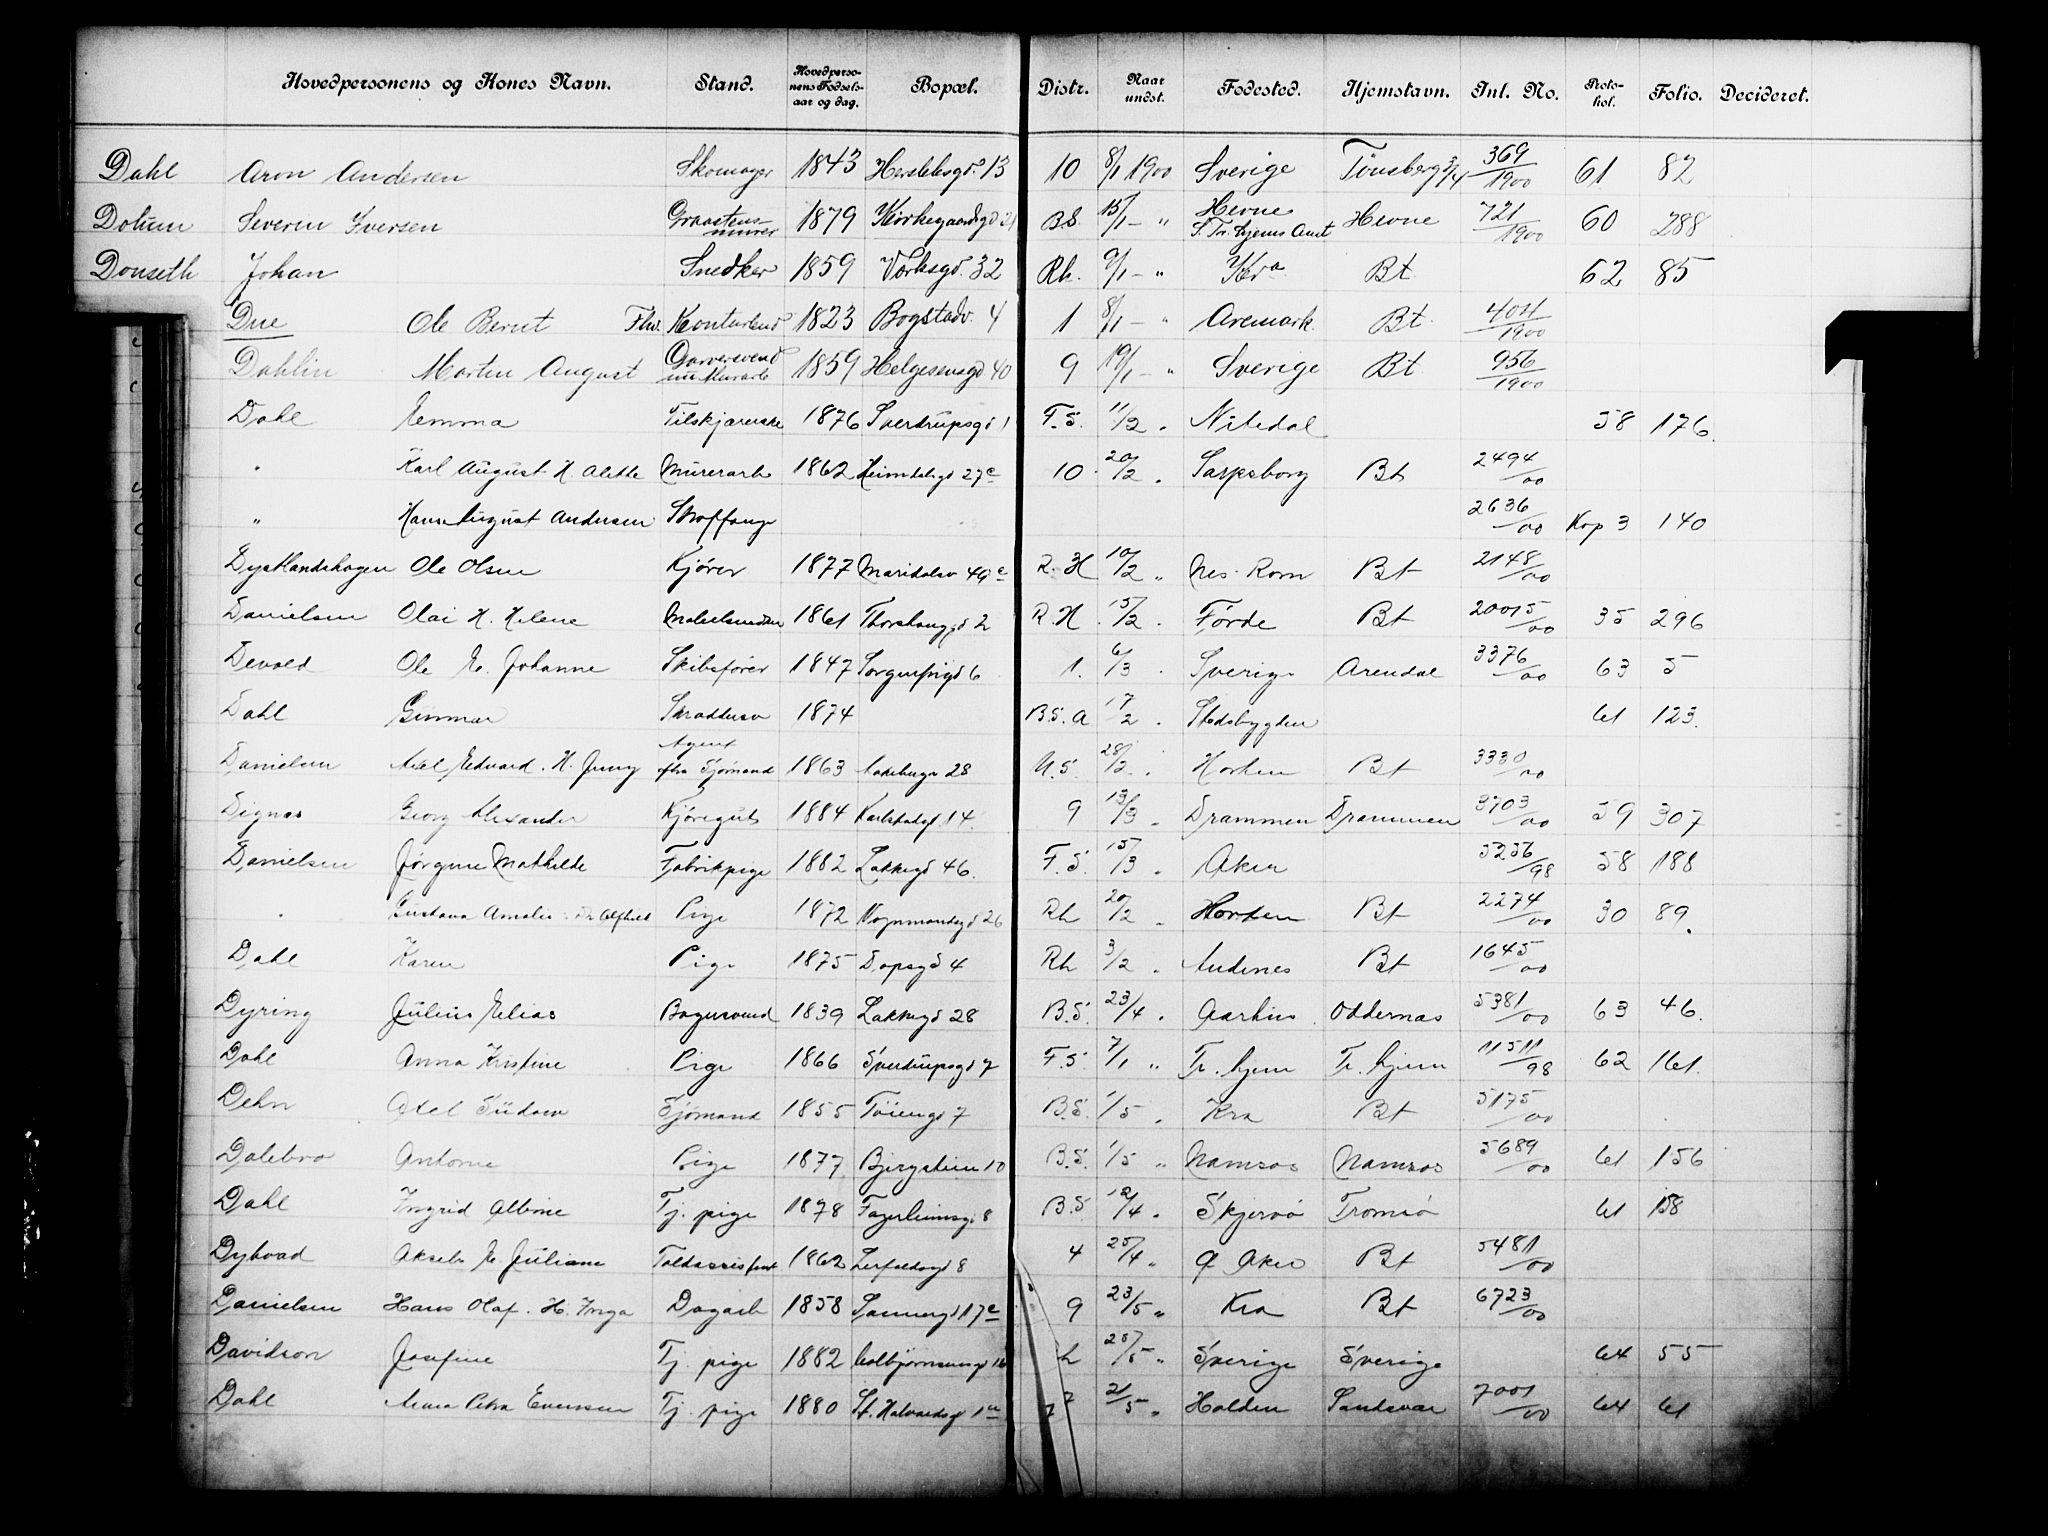 Hovedpersonens og Kones Navn. Stand. Hovedpersonens Fødselsaar og dag. Bopæl. Distr. Naar undst. Fødested. Hjemstavn. Inl. No. Protokol. Folio. Decideret.
Dahl Aron Andersen Skomager 1843 Herslebsgd. 13 10 8/1 1900 Sverige Tønsberg 369/1900 61 82
Severin Iversen Graastensmurer 1879 Kirkegaardsgd 21 B.S. 15/1 — " Hevne S. Tr.hjems Amt Hevne 721/1900 60 288
Donseth Johan Snedker 1859 Verksgd. 32 Rh. 9/1 — " Kra Bt 62 85
Due Ole Bernt Fhv. 1823 Bogstadv. 4 1 8/1 — " Aremark Bt 404/1900
Dahlin Martin August Garversvend 1859 Helgesensgd 40 9 19/1 — " Sverige Bt 956/1900
Dahl Emma Tilskjærerske 1876 Sverdrupsgd 1 F.S. 11/2 " Nitedal 58 176
" Karl August H. Alette Murerarb 1862 Heimdalsgd 27c 10 20/2 " Sarpsborg Bt 2494/00
" Hans August Andersen 2636/00 Kop 3 140
Ole Olsen Kjører 1877 Maridalsv 49c R.H 10/2 " Nes. Rom Bt 2148/00
Danielsen Olai H. Helene 1861 2 R.H. 15/2 " Førde Bt 20015/00 35 296
Devold Ole E. Johanne Skibsfører 1847 Sorgenfrigd 6 1. 6/3 " Sverige Arendal 3376/00 63 5
Dahl Gunnar 1874 B.S. A 17/2 " Stadsbygden 61 123
Danielsen Axel Edvard. H. Jenny Agent fhv Sjømand 1863 28 U.S. 28/2 " Horten Bt 3330/00
Dignas Georg Alexander Kjøregut 1884 Karlstadgt 14. 9 13/3 " Drammen Drammen 3703/00 59 307
Danielsen Jørgine Mathilde Fabrikpige 1882 Lakkegd 46. F.S. 15/3 " Aker 5256/98 58 188
" Gustava Amalie Pige 1872 Vognmandsgd 26 Rh 20/2 " Horten Bt 2274/00 30 89
Dahl Karen Pige 1875 Dopsgd 4 Rh 3/2 " Andenes Bt 1645/00
Dyring Julius Elias Bagersvend 1839 Lakkegd 28 B.S. 23/4 " Aarhus Oddernæs 5381/00 63 46.
Dahl Anna Kristine Pige 1866 Sverdrupsgd 7 F.S. 7/1 " Tr. hjem Tr. hjem 11511/98 62 161
Dehn Axel Südow Sjømand 1855 Tøiengd 7 B.S. 1/5 " Kra Bt 5175/00
Dalebro Antonie Pige 1877 Bjergstien 10 B.S. 1/5 " Namsos Namsos 5689/00 61 156
Dahl Ingrid Albine Tj. pige 1878 Fagerheimsgd 8 B.S 12/4 " Skjervø Tromsø 61 158
Dybvad Aksel E Juliane Toldassistent 1862 8 4 25/4 " Ø Aker Bt 5481/00
Danielsen Hans Olaf. H. Inga Dagarb 1858 Sannergd 17c 9 23/5 " Kra Bt 6723/00
Davidson Josefine Tj. pige 1882 Colbjørnsensgd 25/5 " Sverige Sverige 64 55
Dahl Anna Petra Evensen Tj. pige 1880 St. Halvardsgd 7 21/5 " Holden Sandsvær 7001/00 64 61